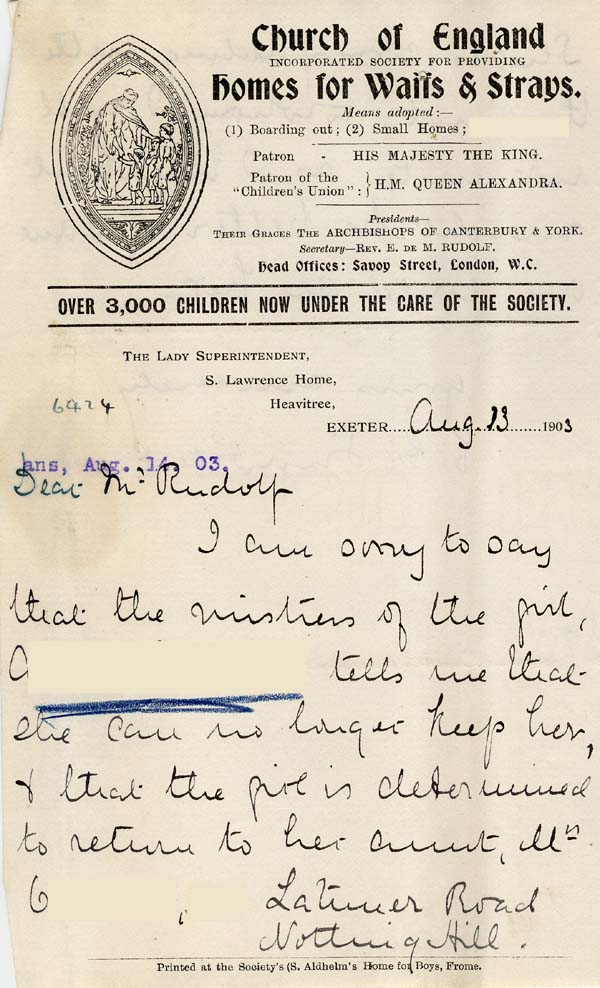 Church of England
INCORPORATED SOCIETY FOR PROVIDING
Homes for Waifs & Strays.
Means adopted:—
(1) Boarding out; (2) Small Homes;
Patron - HIS MAJESTY THE KING.
Patron of the
"Children's Union": } H.M. QUEEN ALEXANDRA.
Presidents—
THEIR GRACES THE ARCHBISHOPS OF CANTERBURY & YORK.
Secretary—REV. E. DE M. RUDOLF.
Head Offices: Savoy Street, London, W.C.
OVER 3,000 CHILDREN NOW UNDER THE CARE OF THE SOCIETY.
THE LADY SUPERINTENDENT,
S. Lawrence Home,
6424
Heavitree,
EXETER.....Aug. 13.......1903
ans, Aug. 14. 03.
Dear Mr Rudolf
I am sorry to say
that the mistress of the girl,
A tells me that
she can no longer keep her,
& that the girl is determined
to return to her aunt, Mrs
C , Latimer Road
Notting Hill.
Printed at the Society's (S. Aldhelm's Home for Boys, Frome.